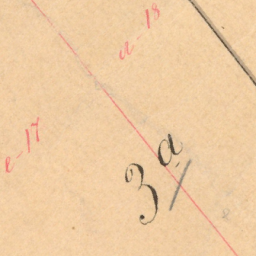 a-18
e-17
3a